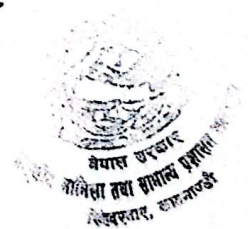 नेपाल सरकार
मामिला तथा सामान्य प्रशासन
सिंहदरबार, काठमाण्डौ